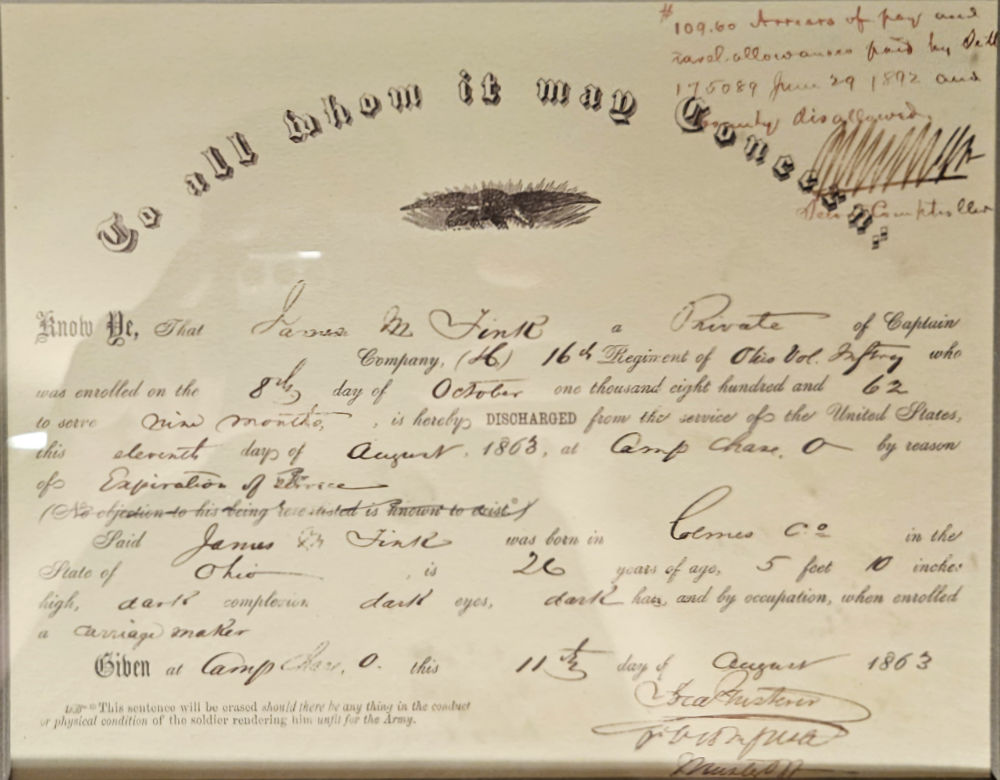 $
109.60 Arrears of pay and
travel allowances paid by Settt
175089 June 29 1892 and
bounty disallowed.
Comptroller
To all whom it may Concern:
Know Ye, That James M Fink a Private of Captain
Company, (H,) 16th Regiment of Ohio Vol. Inftry who
was enrolled on the 8th day of October one thousand eight hundred and 62
to serve nine months, , is hereby DISCHARGED from the service of the United States,
this eleventh day of August, 1863, at Camp Chase, O by reason
of Expiration of Service
(No objection to his being re-enlisted is known to exist*)
Said James M Fink was born in Holmes Co in the
State of Ohio , is 26 years of age, 5 feet 10 inches
high, dark complexion dark eyes, dark hair, and by occupation, when enrolled
a carriage maker
Given at Camp Chase, O. this 11th day of August 1863
* This sentence will be erased should there be any thing in the conduct
or physical condition of the soldier rendering him unfit for the Army.